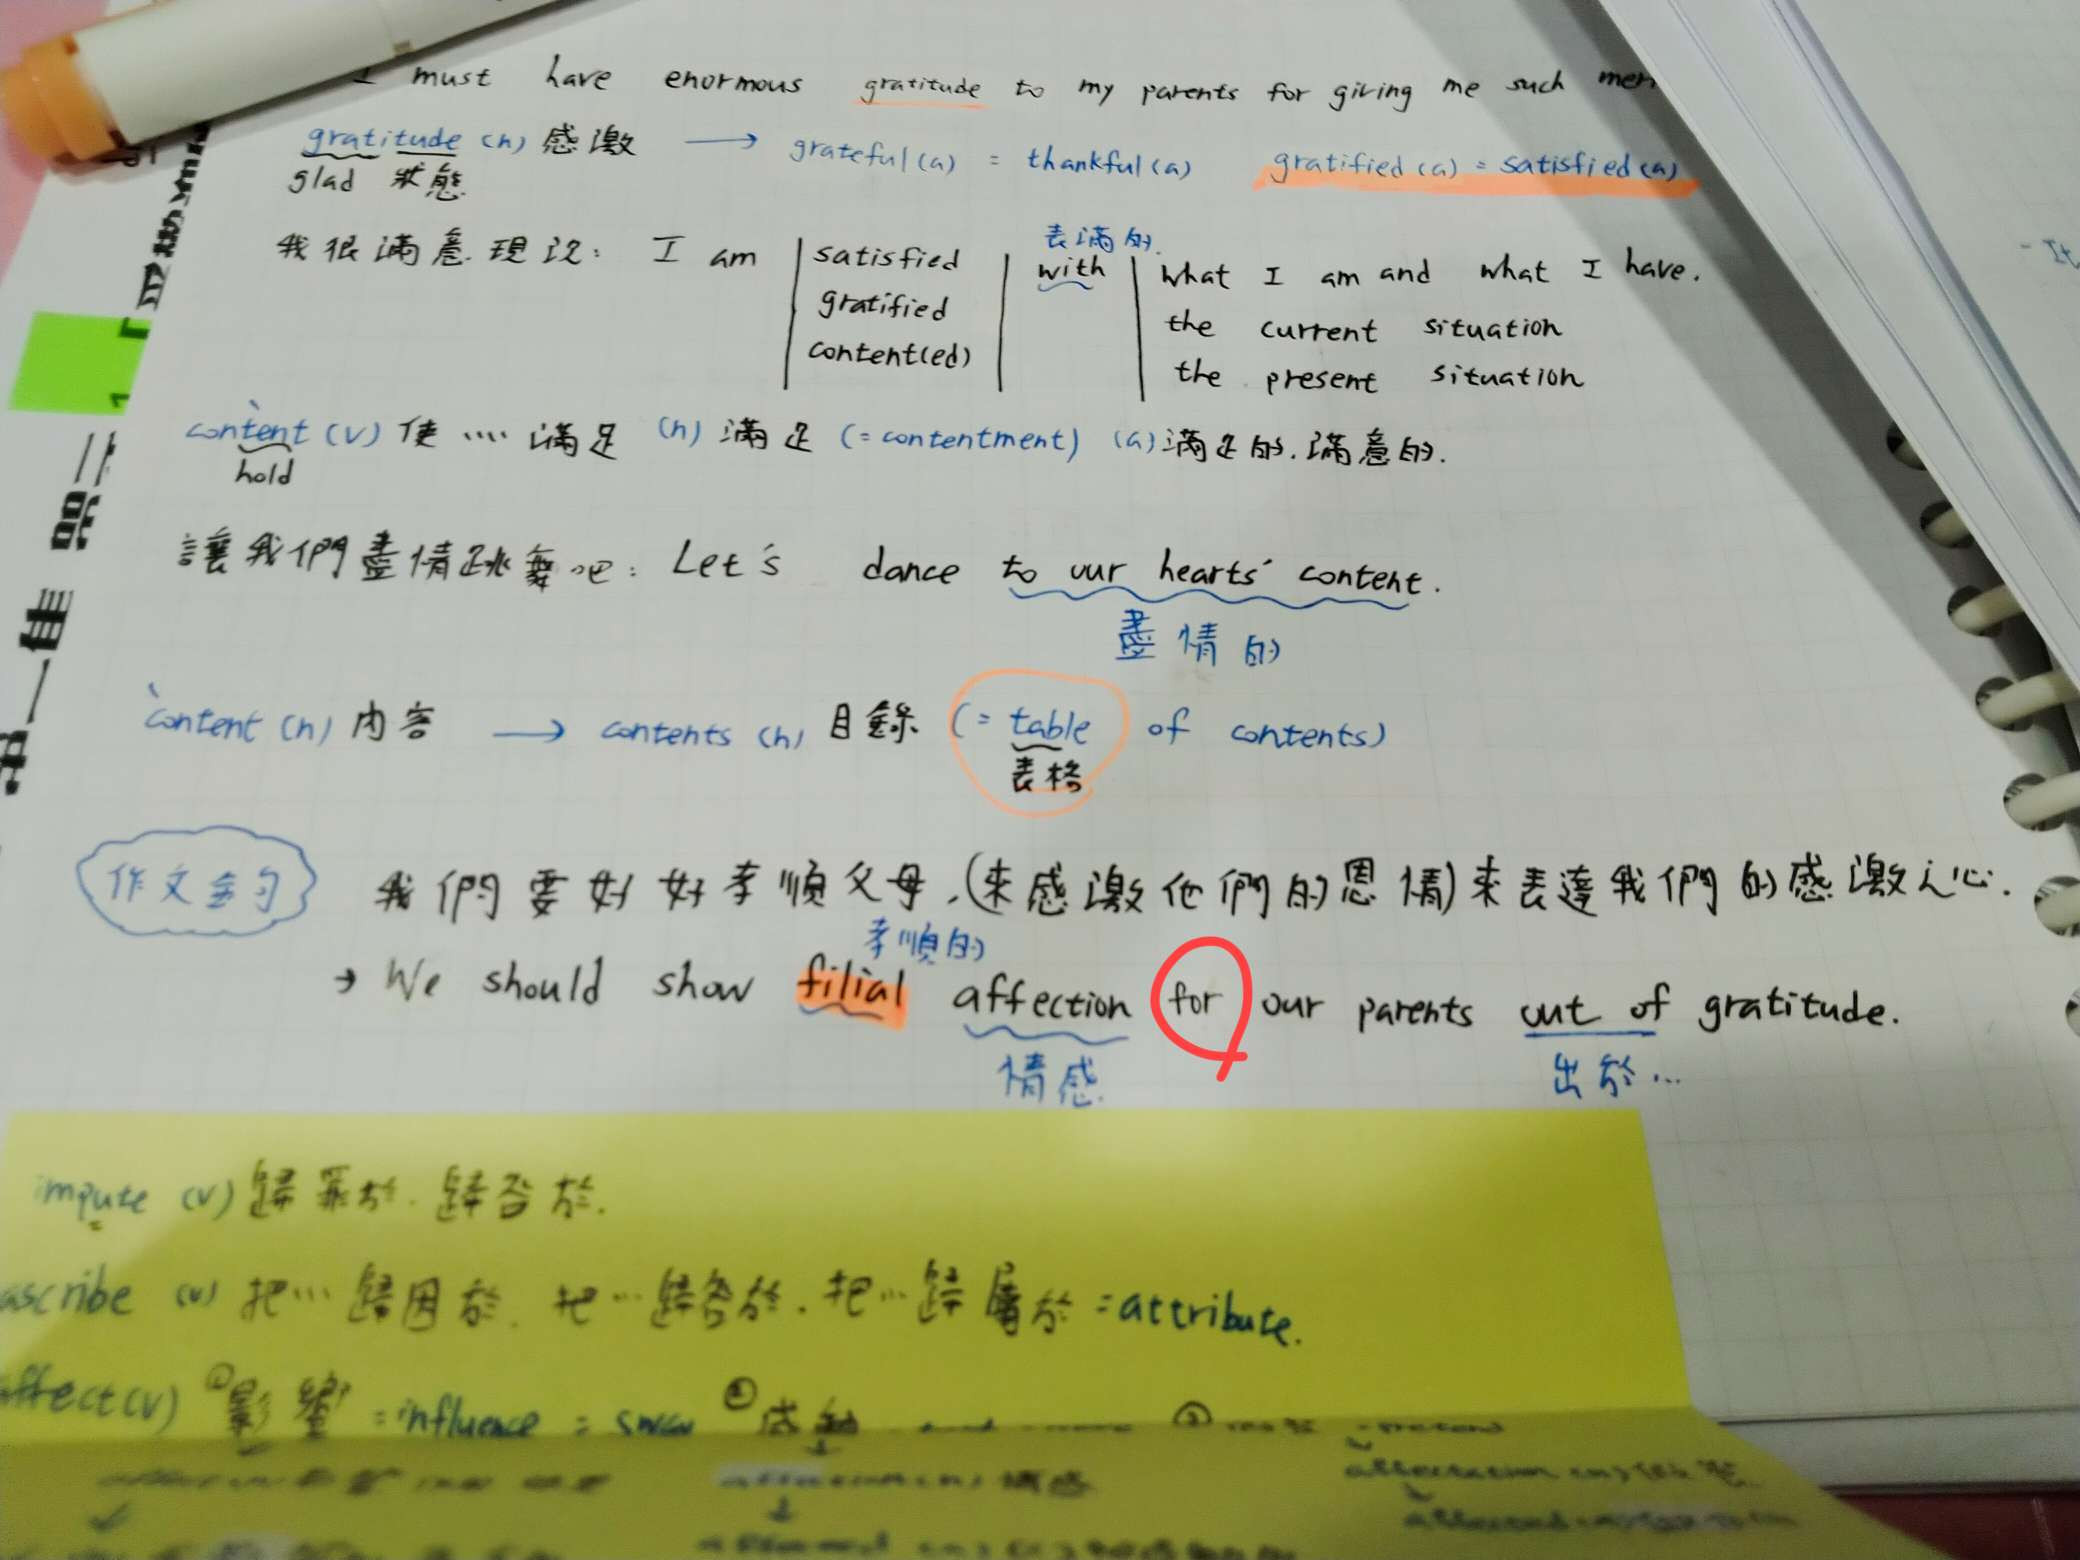 I must have enormous gratitude to my parents for giving me such
gratitude (n) 感激 → grateful (a) = thankful (a) gratified (a) = satisfied (a)
glad 狀態
表滿的
我很滿意現況: I am satisfied with what I am and what I have.
gratified the current situation
content(ed) the present situation
content (v) 使…. 滿足 (n) 滿足 (= contentment) (a) 滿足的. 滿意的.
hold
讓我們盡情跳舞吧: Let's dance to our hearts' content.
盡情的
content (n) 內容 → contents (n) 目錄 (= table of contents)
表格
作文金句 我們要好好孝順父母, (來感激他們的恩情) 來表達我們的感激之心.
孝順的
→ We should show filial affection for our parents out of gratitude.
情感 出於…
impute (v) 歸罪於. 歸咎於.
ascribe (v) 把… 歸因於. 把…歸咎於. 把…歸屬於 = attribute.
affect (v) ① 影響 = influence = sway ② 感動 ③